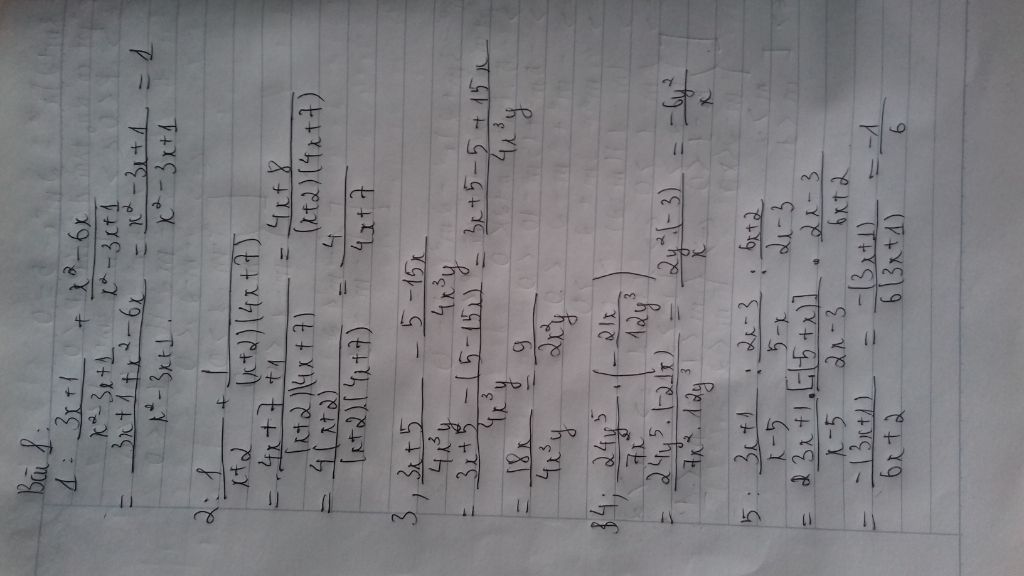 Bài 1.
1: \frac{3x+1}{x^2-3x+1} + \frac{x^2-6x}{x^2-3x+1}
= \frac{3x+1+x^2-6x}{x^2-3x+1} = \frac{x^2-3x+1}{x^2-3x+1} = 1
2: \frac{1}{x+2} + \frac{1}{(x+2)(4x+7)}
= \frac{4x+7+1}{(x+2)(4x+7)} = \frac{4x+8}{(x+2)(4x+7)}
= \frac{4(x+2)}{(x+2)(4x+7)} = \frac{4}{4x+7}
3, \frac{3x+5}{4x^3y} - \frac{5-15x}{4x^3y}
= \frac{3x+5-(5-15x)}{4x^3y} = \frac{3x+5-5+15x}{4x^3y}
= \frac{18x}{4x^3y} = \frac{9}{2x^2y}
4, \frac{24y^5}{7x^2} \cdot (-\frac{21x}{12y^3})
= \frac{24y^5.(-21x)}{7x^2.12y^3} = \frac{2y^2(-3)}{x} = \frac{-6y^2}{x}
5: \frac{3x+1}{x-5} : \frac{2x-3}{5-x} : \frac{6x+2}{2x-3}
= \frac{3x+1}{x-5} . \frac{[-(-5+x)]}{2x-3} . \frac{2x-3}{6x+2}
= \frac{-(3x+1)}{6x+2} = \frac{-(3x+1)}{6(3x+1)} = \frac{-1}{6}